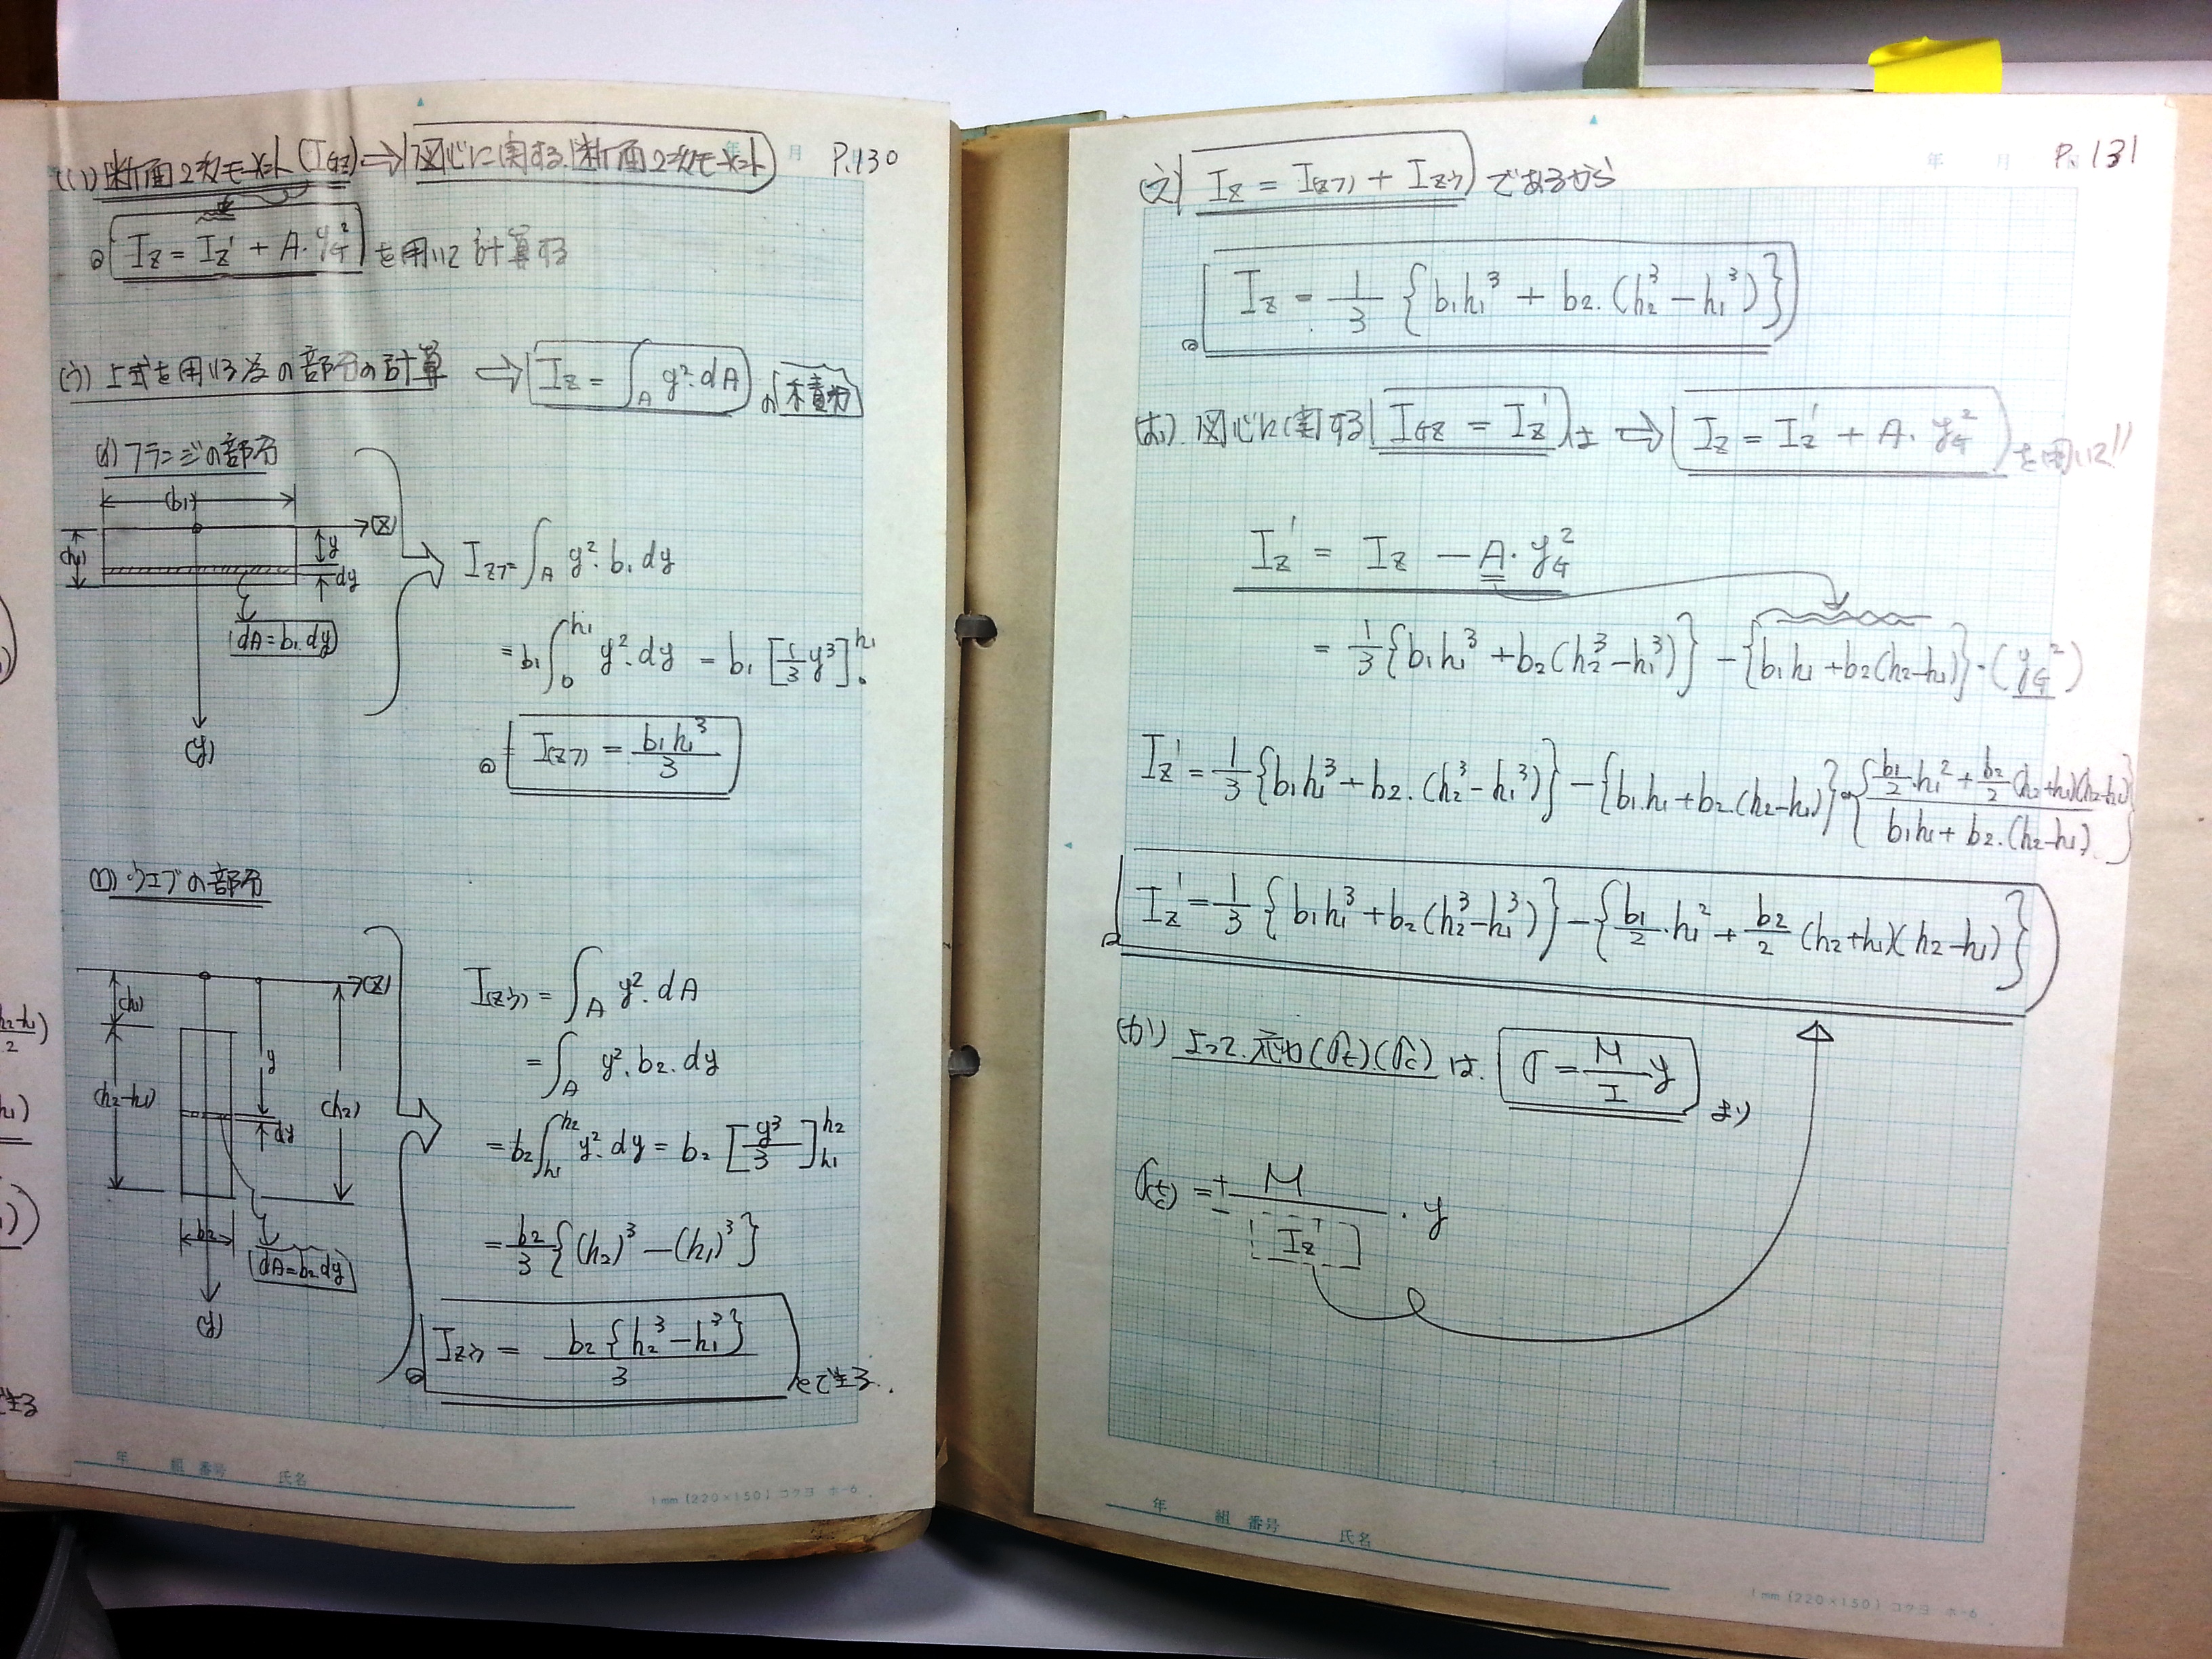 P.130
(い) 断面2次モーメント (IGz) ⇒ 図心に関する断面2次モーメント
Iz = Iz' + A・yG² を用いて計算する
(う) 上式を用いる為の部分の計算 ⇒ Iz = ∫A y²・dA の積分
(イ) フランジの部分
(b1)
(z)
(h1)
y
dy
dA = b1・dy
(y)
Izフ = ∫A y²・b1 dy
= b1 ∫0^h1 y²・dy = b1 [1/3 y³]0^h1
I(zフ) = b1h1³/3
(ロ) ウェブの部分
(z)
(h1)
y
(h2-h1)
(h2)
dy
b2
dA = b2・dy
(y)
I(zウ) = ∫A y²・dA
= ∫A y²・b2・dy
= b2 ∫h1^h2 y²・dy = b2 [y³/3]h1^h2
= b2/3 {(h2)³ - (h1)³}
Izウ = b2{h2³ - h1³}/3 とできる.
年 組 番号 氏名
1mm (220×150) コクヨ ホ-6
年 月
P. 131
(え) Iz = I(zフ) + Izウ であるから
Iz = 1/3 {b1h1³ + b2・(h2³ - h1³)}
(お) 図心に関する IGz = Iz' は ⇒ Iz = Iz' + A・yG² を用いて
Iz' = Iz - A・yG²
= 1/3 {b1h1³ + b2(h2³ - h1³)} - {b1h1 + b2(h2-h1)}・(yG²)
Iz' = 1/3 {b1h1³ + b2・(h2³ - h1³)} - {b1h1 + b2・(h2-h1)}・{(b1/2・h1² + b2/2 (h2+h1)(h2-h1))/(b1h1 + b2・(h2-h1))}
Iz' = 1/3 {b1h1³ + b2(h2³ - h1³)} - {b1/2・h1² + b2/2 (h2+h1)(h2-h1)}
(か) よって. 応力(σt)・(σc) は. σ = M/I y より
σ(t/c) = ± M/Iz'・y
年 組 番号 氏名
1mm (220×150) コクヨ ホ-6